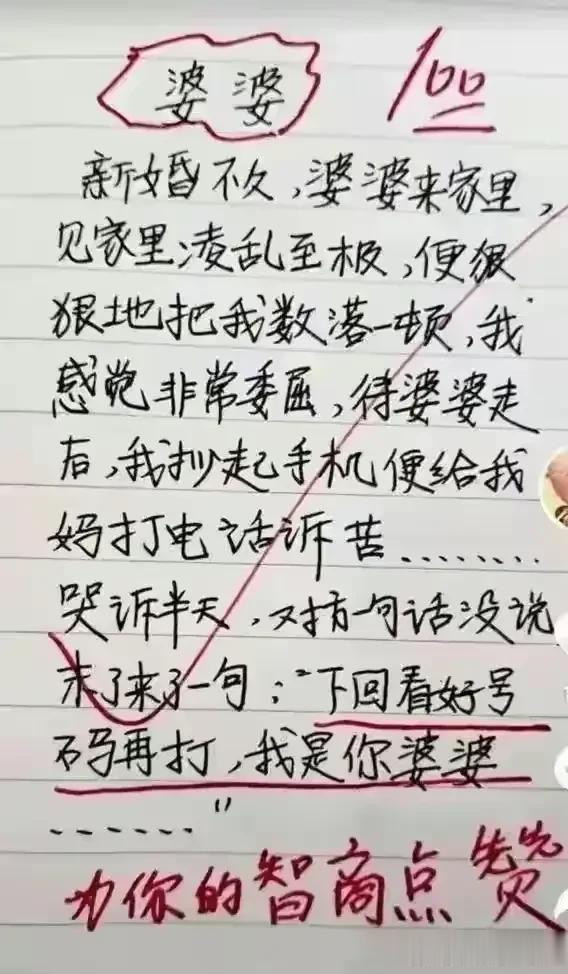 婆婆
100
新婚不久，婆婆来家里，
见家里凌乱至极，便狠
狠地把我数落一顿，我
感觉非常委屈，待婆婆走
后，我抄起手机便给我
妈打电话诉苦........
哭诉半天，对方一句话没说
末了来了一句："下回看好号
码再打，我是你婆婆
......."
为你的智商点赞